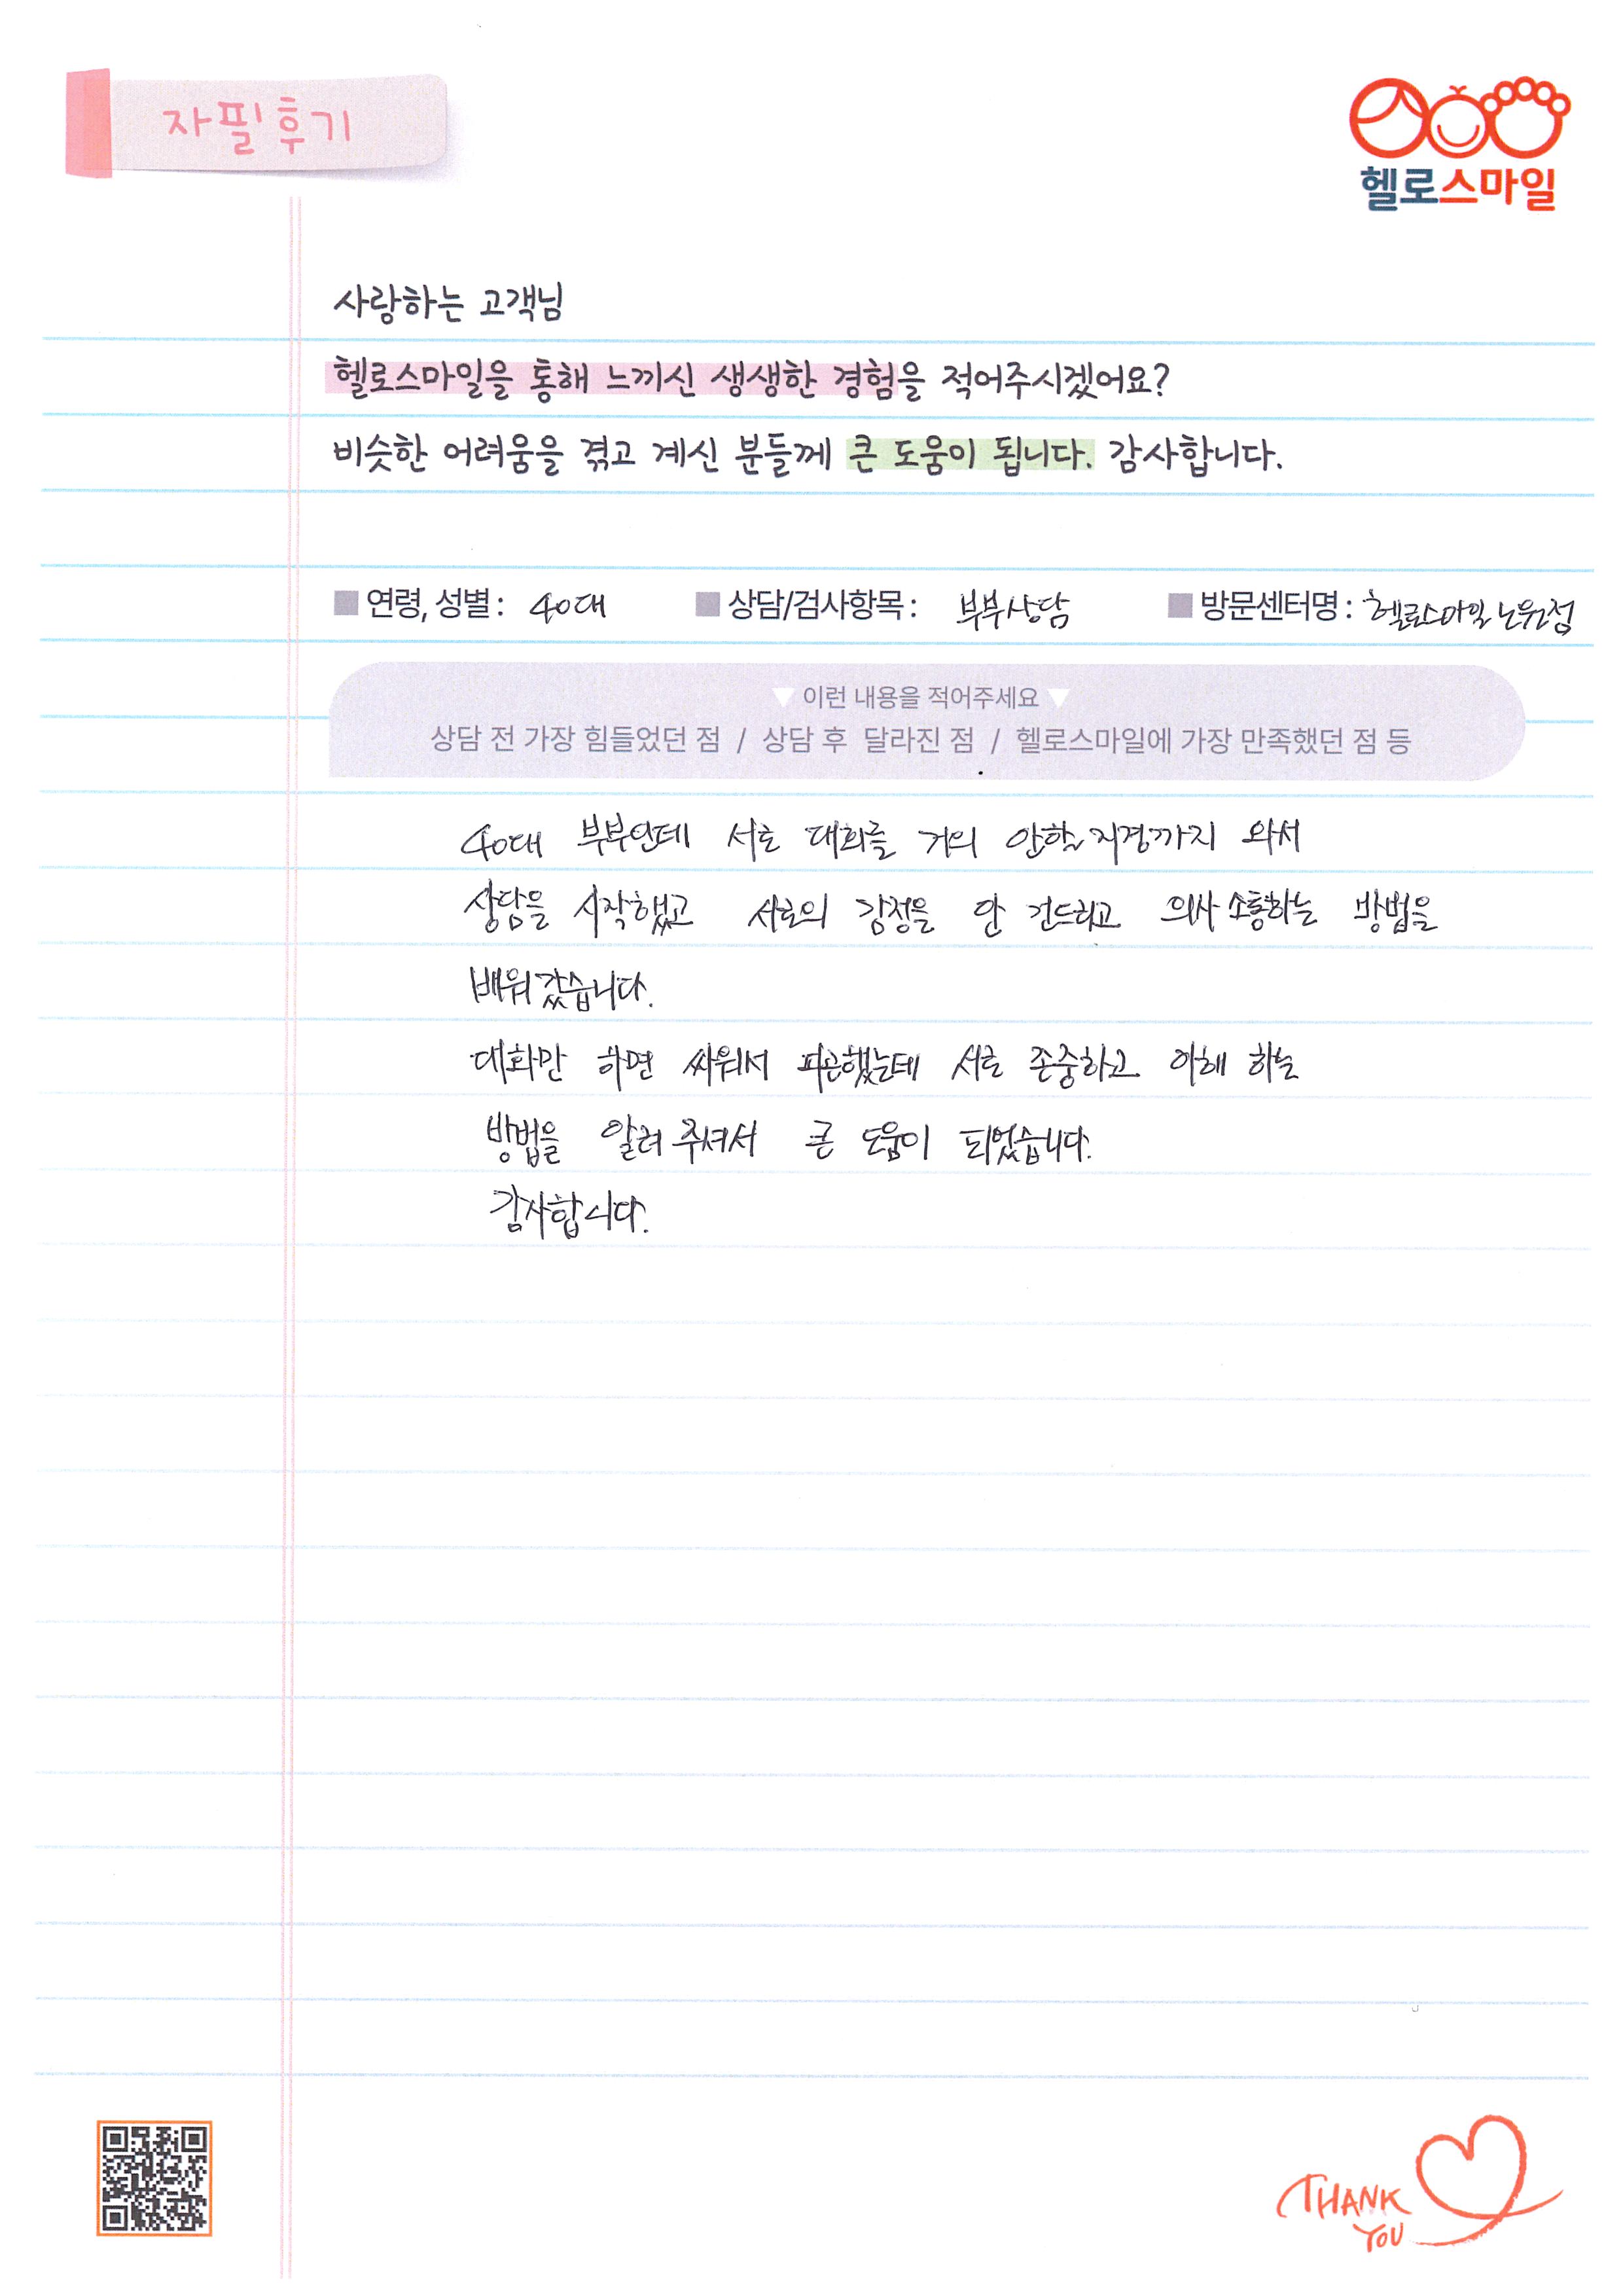 자필후기
헬로스마일
사랑하는 고객님
헬로스마일을 통해 느끼신 생생한 경험을 적어주시겠어요?
비슷한 어려움을 겪고 계신 분들께 큰 도움이 됩니다. 감사합니다.
■ 연령, 성별 : 40대 ■ 상담/검사항목 : 부부상담 ■ 방문센터명 : 헬로스마일 노원점
▼ 이런 내용을 적어주세요 ▼
상담 전 가장 힘들었던 점 / 상담 후 달라진 점 / 헬로스마일에 가장 만족했던 점 등
40대 부부인데 서로 대화를 거의 안할 지경까지 와서
상담을 시작했고 서로의 감정을 안 건드리고 의사소통하는 방법을
배워갔습니다.
대화만 하면 싸워서 피곤했는데 서로 존중하고 이해 하는
방법을 알려 주셔서 큰 도움이 되었습니다.
감사합니다.
THANK
YOU